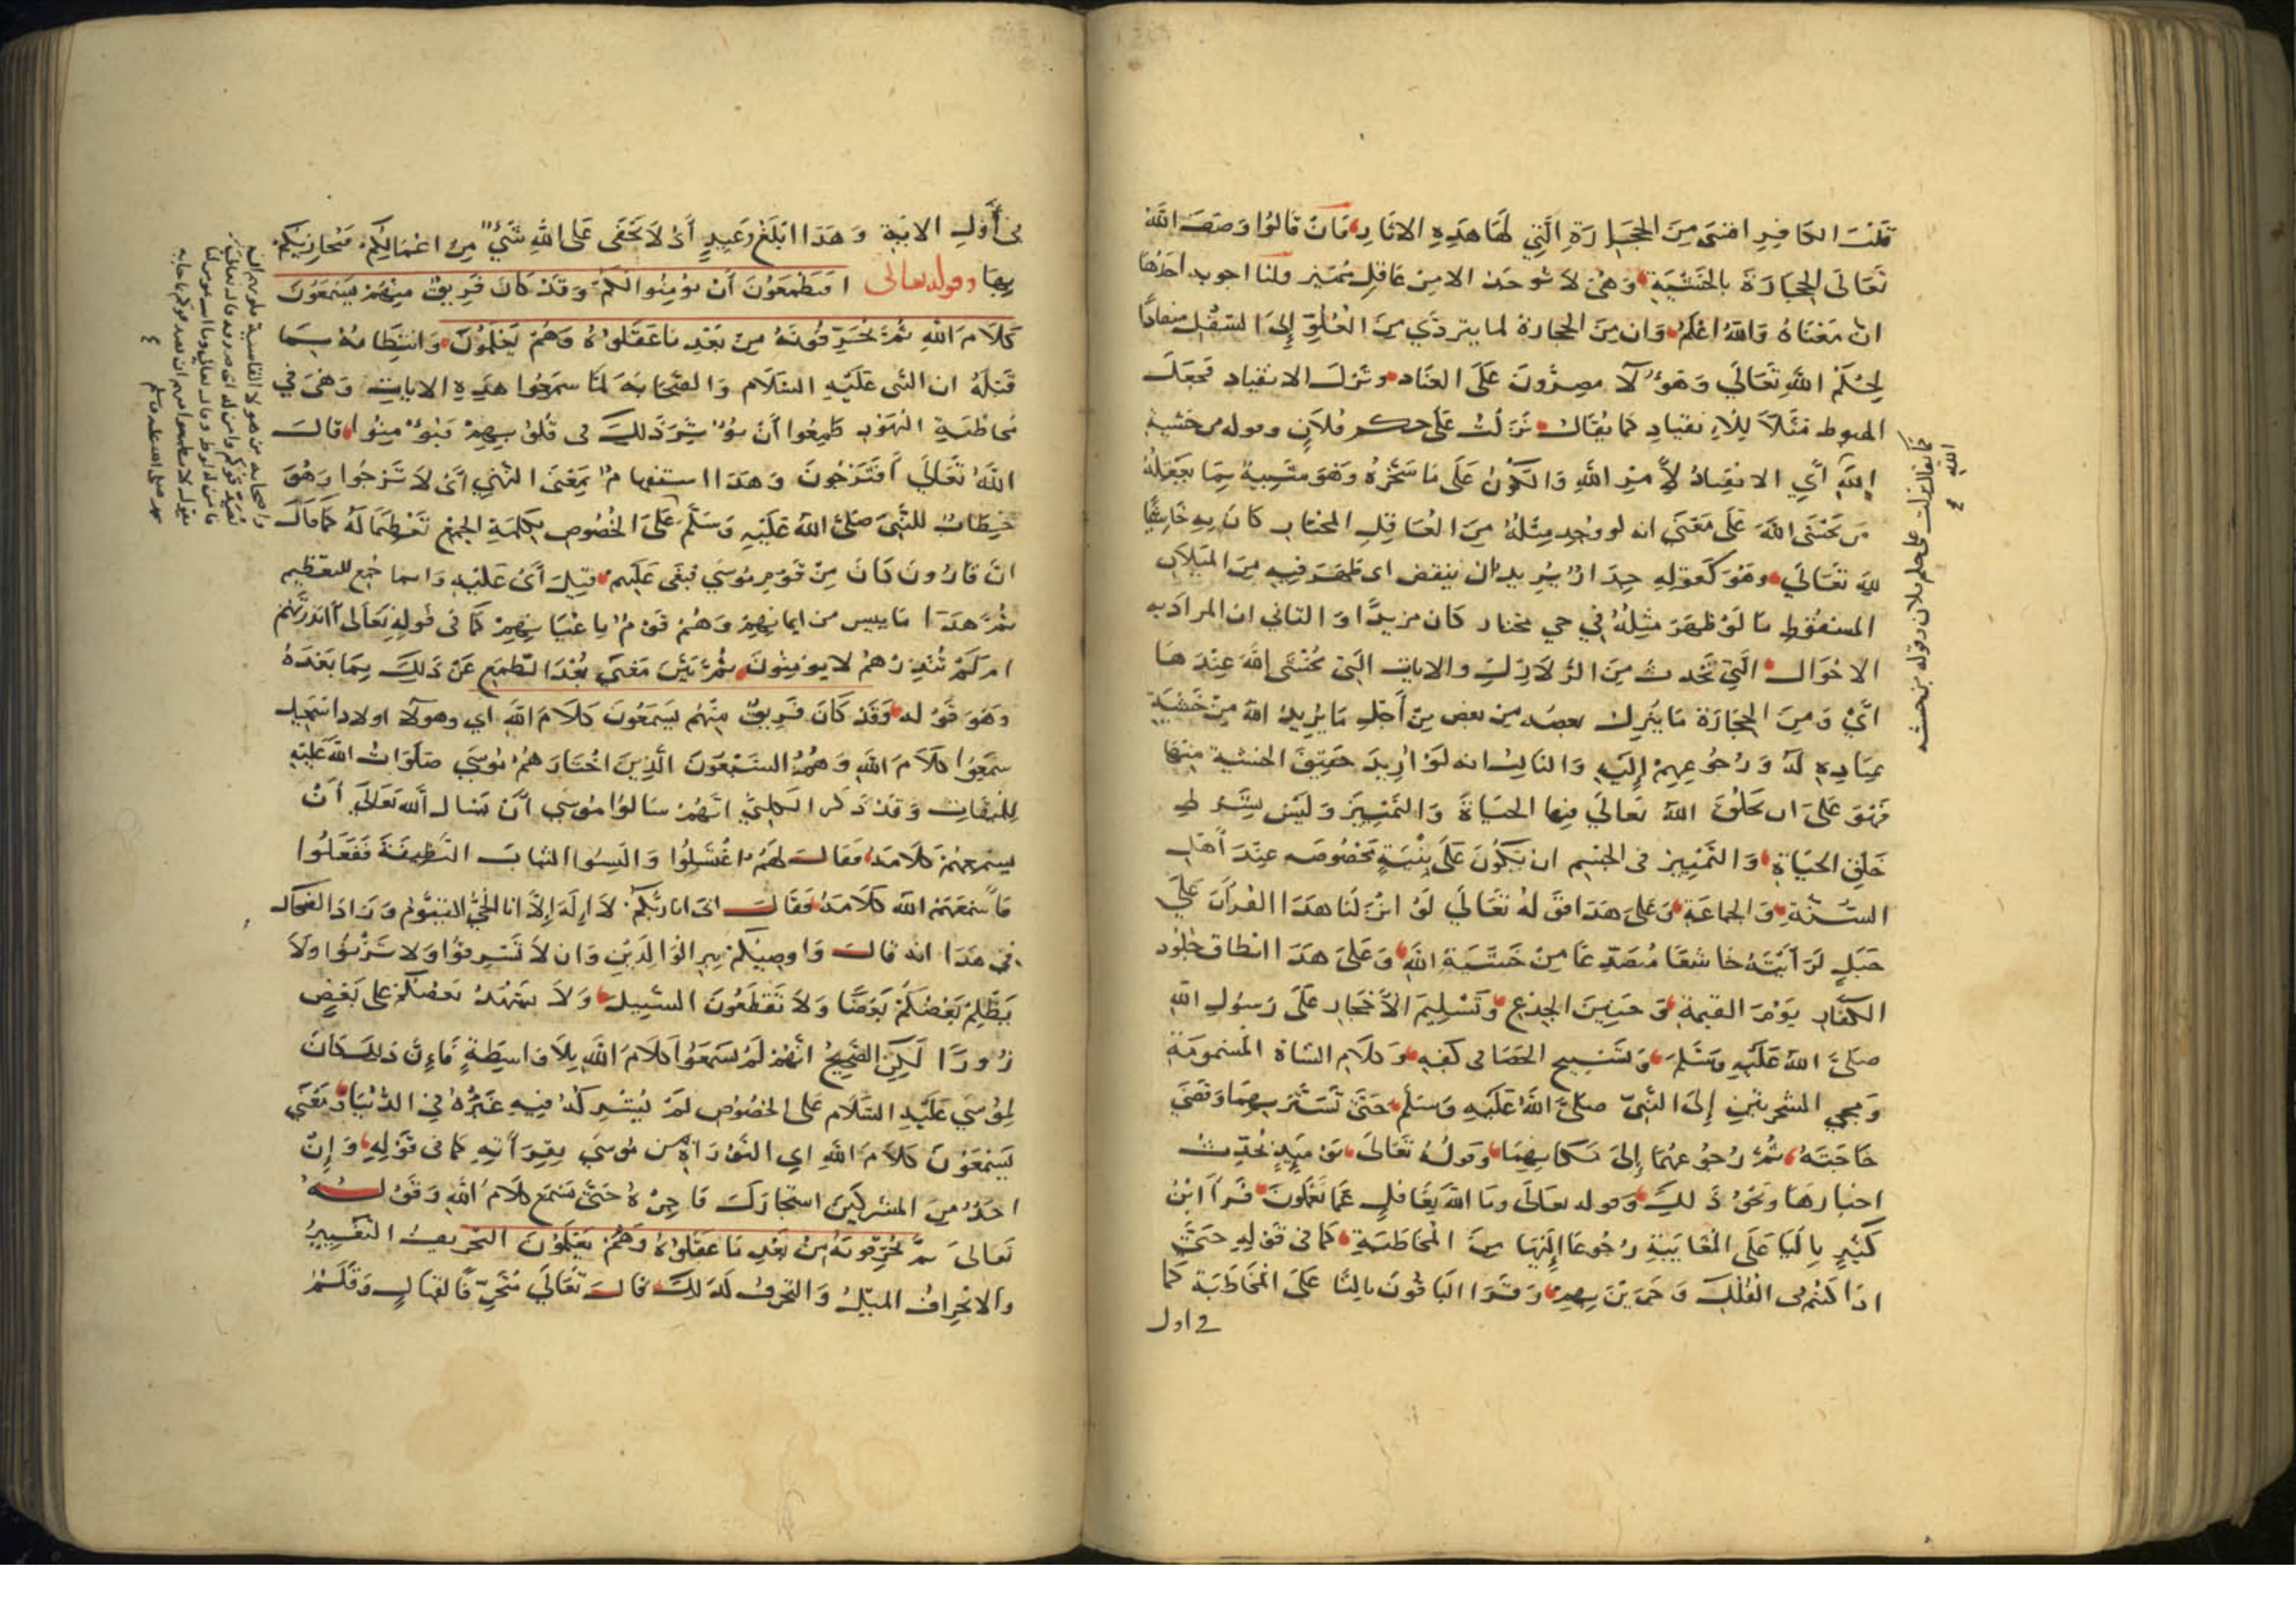 قلب الكافر اقسى من الحجارة التي لها هذه الاثار فان قالوا وصف الله
تعالى الحجارة بالخشية وهي لا توجد الا من عاقل مميز قلنا اجوبة احدها
ان معناه والله اعلم وان من الحجارة لما يتردي من العلو الى السفل منقادا
لحكم الله تعالى وهؤلا مصرون على العناد وترك الانقياد فجعل
الهبوط مثلا للانقياد كما يقال نزلت على حكم فلان وقوله من خشية
الله اي الانقياد لامر الله والكون على ما سخره وهو متسبب بما يفعله
من يخشى الله على معنى انه لو وجد مثله من العاقل المختار كان به خاشيا
لله تعالى وهو كقوله جدارا يريد ان ينقض اي ظهر فيه من الميلان
السقوط ما لو ظهر مثله في حي مختار كان مريدا والثاني ان المراد به
الاحوال التي تحدث من الزلازل والايات التي يخشى الله عندها
اي ومن الحجارة ما ينزل بعضه من بعض من اجل ما يريد الله من خشية
عباده له ورجوعهم اليه والثالث انه لو اريد حقيقة الخشية منها
فهو على ان يخلق الله تعالى فيها الحياة والتمييز وليس بشرط
خلق الحياة والتمييز في الجسم ان يكون على بنية مخصوصه عند اهل
السنة والجماعة وعلى هذا قوله تعالى لو انزلنا هذا القران على
جبل لرايته خاشعا متصدعا من خشية الله وعلى هذا انطاق جلود
الكفار يوم القيمة وحنين الجذع وتسليم الاحجار على رسول الله
صلى الله عليه وسلم وتسبيح الحصا في كفه وكلام الشاة المسمومة
ومجي الشجرتين الى النبي صلى الله عليه وسلم حتى تستر بهما وقضى
حاجته ثم رجوعهما الى مكانهما وقوله تعالى يومئذ تحدث
اخبارها ونحو ذلك وقوله تعالى وما الله بغافل عما تعملون قرا ابن
كثير باليا على المغايبة رجوعا اليها من المخاطبة كما في قوله حتى
اذا كنتم في الفلك وجرين بهم وقرا الباقون بالتا على المخاطبة كما
في اول
كما يقال نزلت على حكم فلان وقوله من خشية
الله
في اول الاية وهذا ابلغ وعيد اي لا يخفى على الله شيء من اعمالكم فيجازيكم
بها وقوله تعالى افتطمعون ان يؤمنوا لكم وقد كان فريق منهم يسمعون
كلام الله ثم يحرفونه من بعد ما عقلوه وهم يعلمون وانتظامه بما
قبله ان النبي عليه السلام والصحابة لما سمعوا هذه الايات وهي في
مخاطبة اليهود طمعوا ان يؤثر ذلك في قلوبهم فيؤمنوا قال
الله تعالى افترجون وهذا استفهام بمعنى النهي اي لا ترجوا وهو
خطاب للنبي صلى الله عليه وسلم على الخصوص بكلمة الجمع تعظيما له كما قال
ان قارون كان من قوم موسى فبغى عليهم قيل اي عليه وانما جمع للتعظيم
ثم هذا تاييس من ايمانهم وهم قوم باعيانهم كما في قوله تعالى اانذرتهم
ام لم تنذرهم لا يومنون ثم بين معنى بعد الطمع عن ذلك بما بعده
وهو قوله وقد كان فريق منهم يسمعون كلام الله اي وهولا اولاد اسجيل
سمعوا كلام الله وهم السبعون الذين اختارهم موسى صلوات الله عليه
للميقات وقد ذكر الكلبي انهم سالوا موسى ان يسال الله تعالى ان
يسمعهم كلامه فقال لهم اغتسلوا والبسوا الثياب النظيفة ففعلوا
فاسمعهم الله كلامه فقال اني انا ربكم لا اله الا انا الحي القيوم وزاد الضحاك
في هذا انه قال واوصيكم ببر الوالدين وان لا تسرقوا ولا تزنوا ولا
يظلم بعضكم بعضا ولا تقطعون السبيل ولا يشهد بعضكم على بعض
زورا لكن الصحيح انهم لم يسمعوا كلام الله بلا واسطة فان ذلك كان
لموسى عليه السلام على الخصوص لم يشركه فيه غيره في الدنيا ومعنى
يسمعون كلام الله اي التوراة من موسى بقراته كما في قوله وان
احد من المشركين استجارك فاجره حتى يسمع كلام الله وقوله
تعالى ثم يحرفونه من بعد ما عقلوه وهم يعلمون التحريف التغيير
والانحراف الميل والتحرف كذلك قال تعالى متحرفا لقتال وقلم